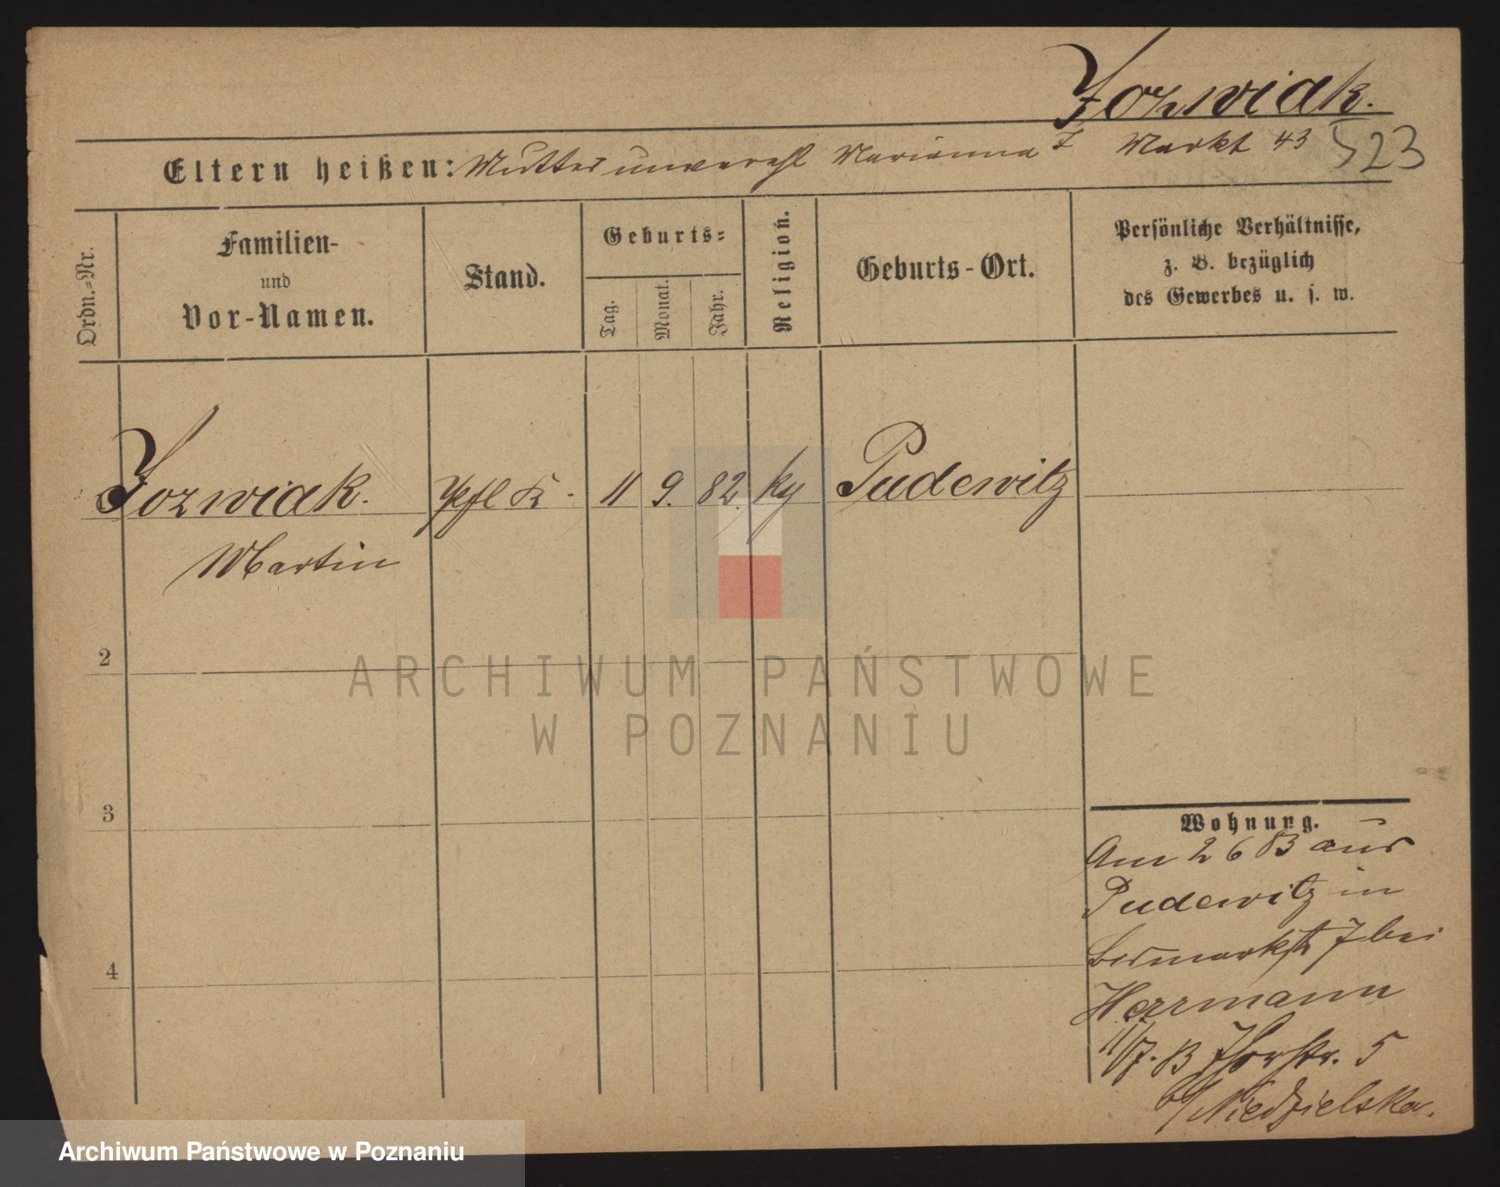 Jozwiak.
Eltern heißen: Mutter unverehl Marianna J Markt 43 523
Ordn.-Nr.
Familien-
und
Vor-Namen.
Stand.
Geburts-
Tag.
Monat.
Jahr.
Religion.
Geburts-Ort.
Persönliche Verhältnisse,
z. B. bezüglich
des Gewerbes u. s. w.
Jozwiak. 11 9. 82. Pudewitz
Martin
2
3
4
Wohnung.
Am 26 83 aus
Pudewitz in
7 bei
Herrmann
11/7. 83 5
b/ Niedzielska.
ARCHIWUM PAŃSTWOWE
W POZNANIU
Archiwum Państwowe w Poznaniu